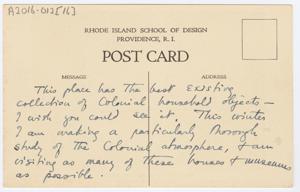 A2016-012[16]
RHODE ISLAND SCHOOL OF DESIGN
PROVIDENCE, R. I.
POST CARD
MESSAGE ADDRESS
This place has the best existing
collection of Colonial household objects –
I wish you could see it. This winter
I am making a particularly thorough
study of the Colonial atmosphere, & am
visiting as many of these houses & museums
as possible.